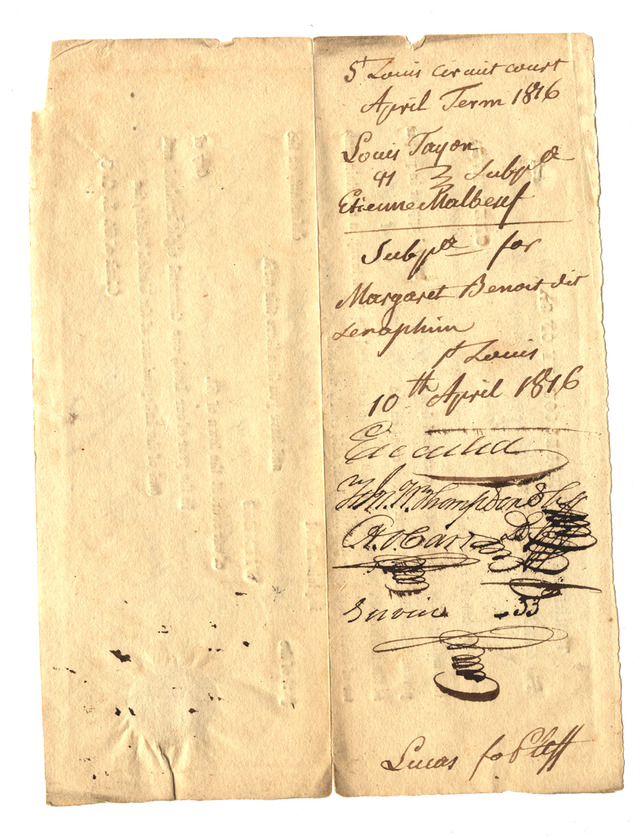 St Louis Circuit court
April Term 1816
Louis Tayon
vs } Subpa
Etienne Malbeuf
Subpa for
Margaret Benoit dit
Seraphim
St Louis
10th April 1816
Executed
Wm Thompson Shff
Service .33
Lucas for Plff